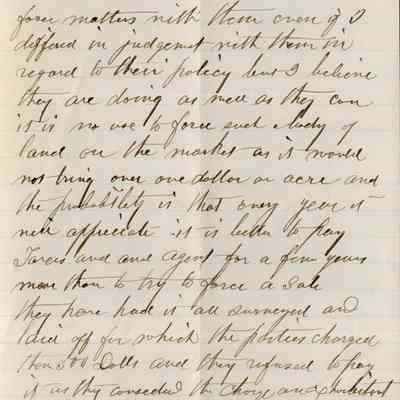 force matters with them even if I
differed in judgement with them in
regard to their policy but I believe
they are doing as well as they can
it is no use to force such a body of
land on the market as it would
not bring over one dollar an acre and
the probability is that every year it
will appreciate it is better to pay
Taxes and and agent for a few years
more than to try to force a Sale
they have had it all surveyed and
laid off for which the parties charged
them 500 Dolls and they refused to pay
it as they conceded the charge an exorbitant